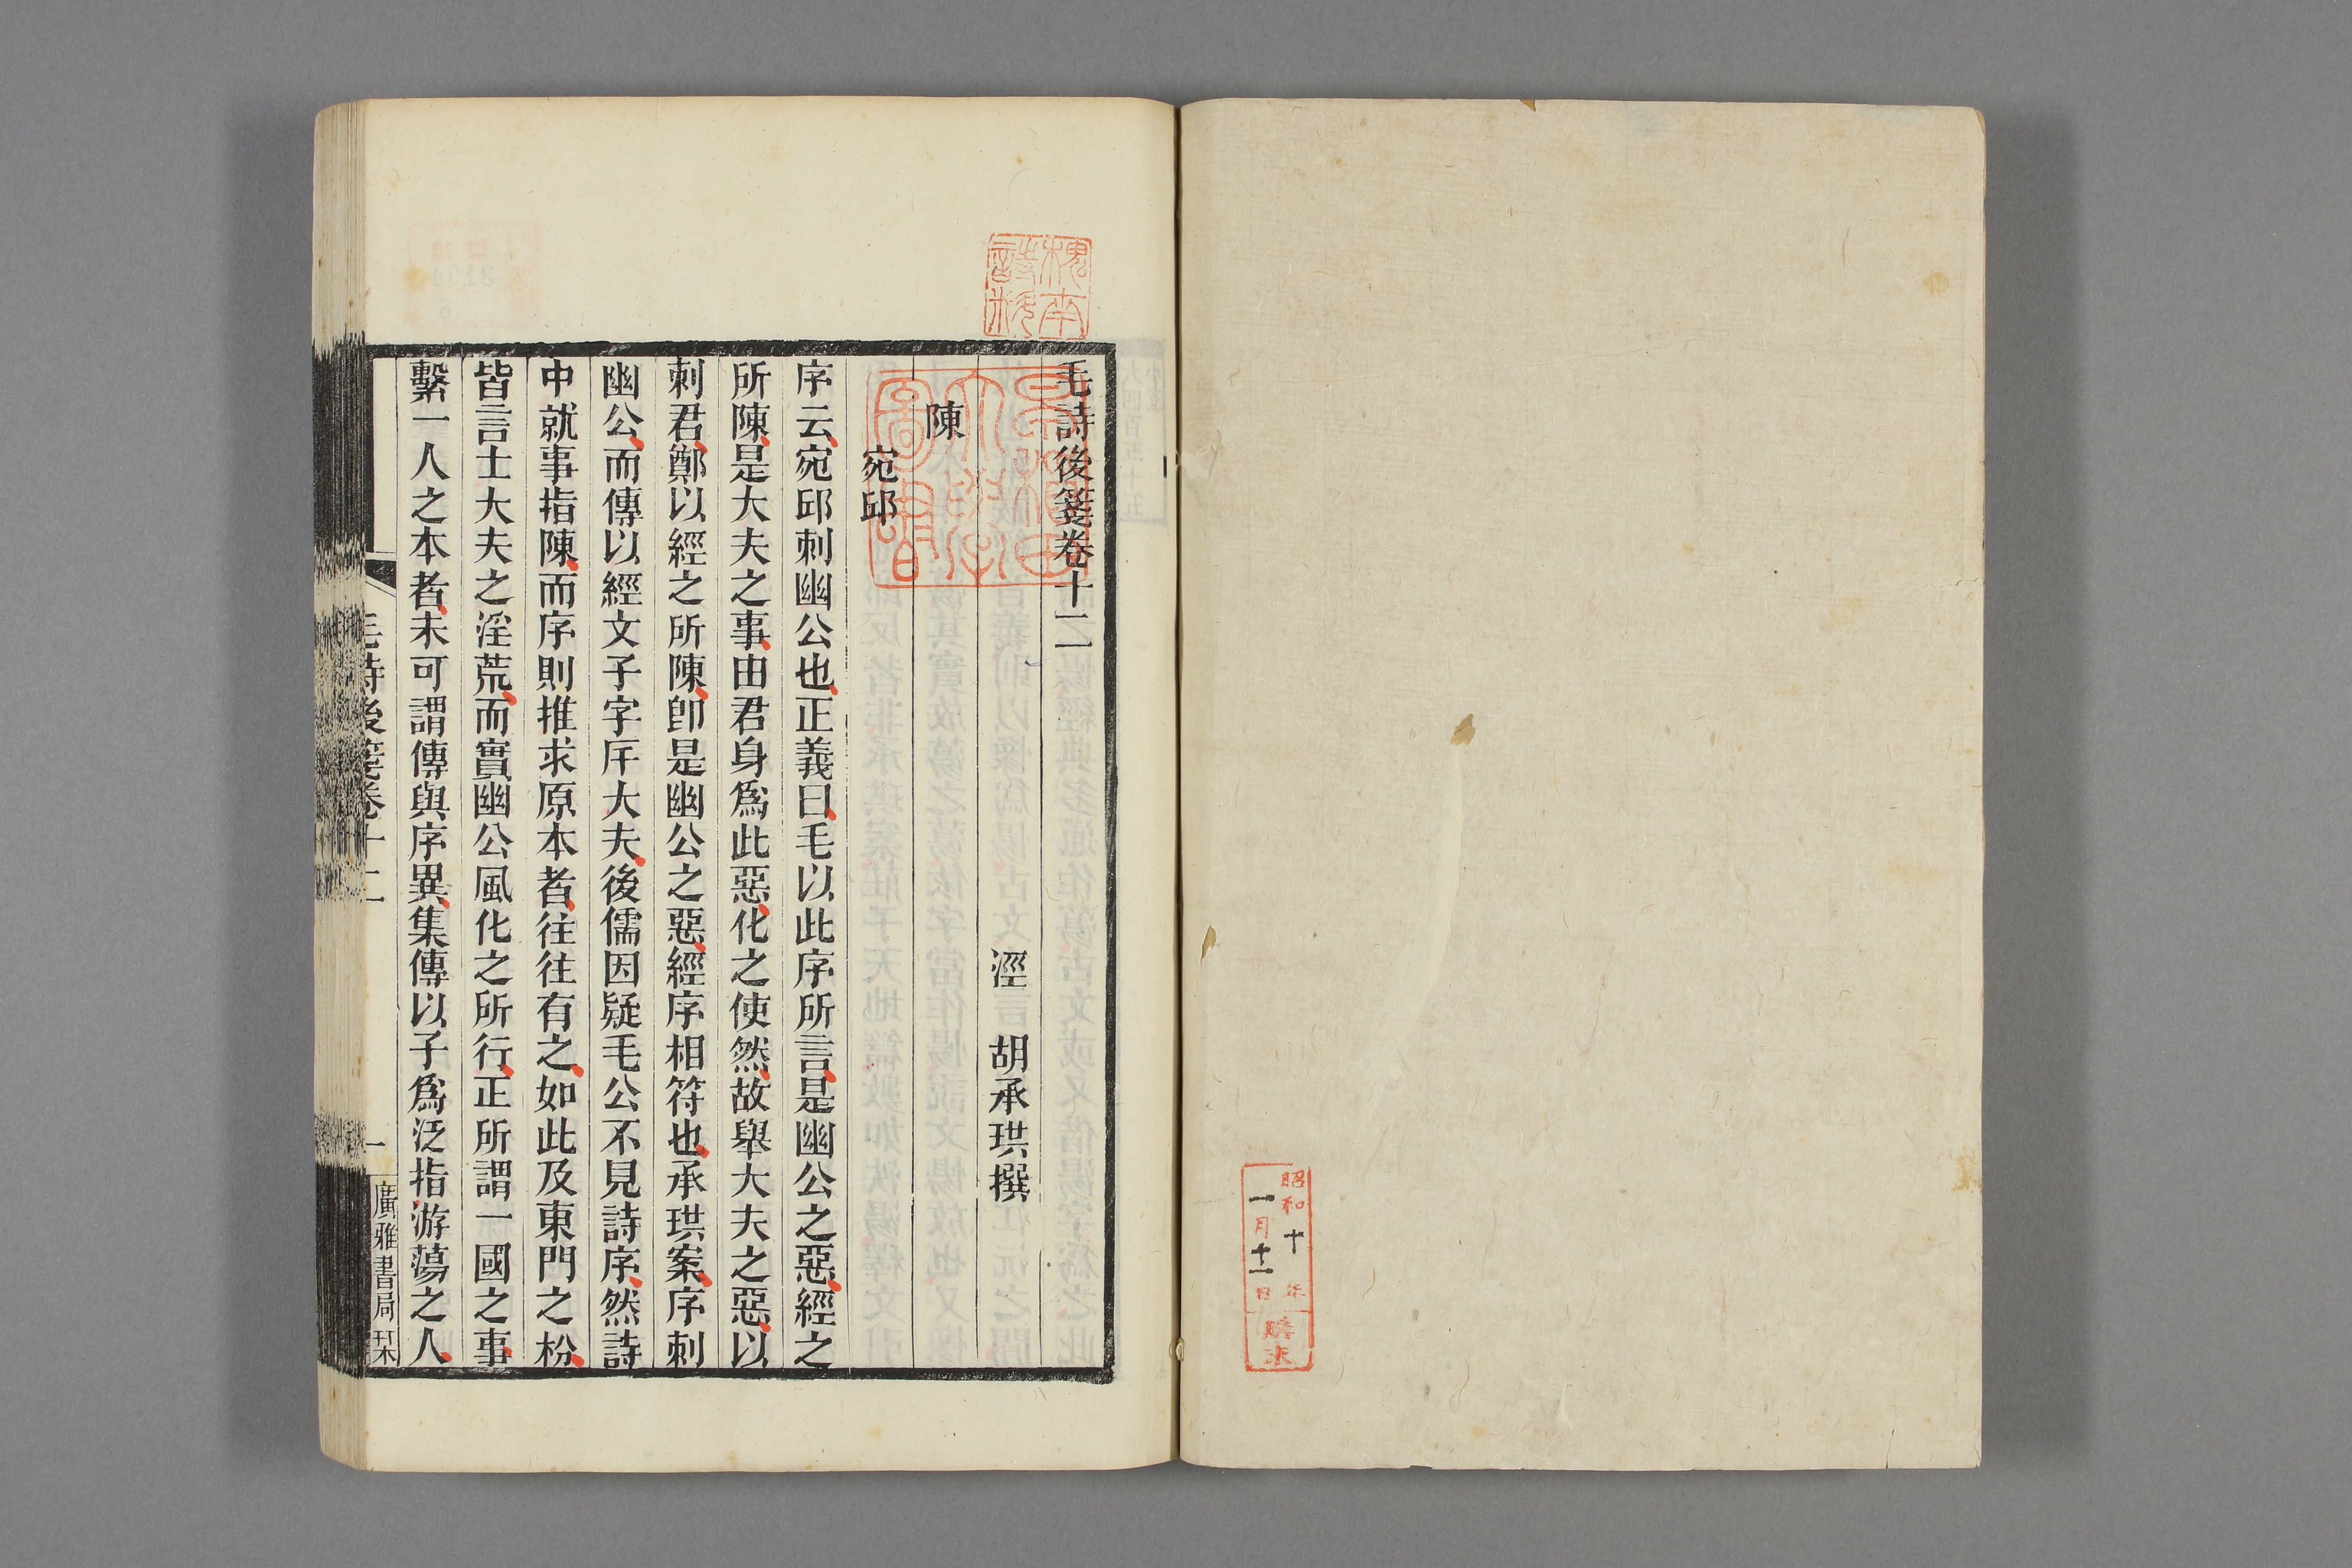 昭和十年
一月十一日
購求
毛詩後箋卷十二
涇 胡承珙撰
陳
宛邱
序云宛邱刺幽公也正義曰毛以此序所言是幽公之惡經之
所陳是大夫之事由君身爲此惡化之使然故舉大夫之惡以
刺君鄭以經之所陳卽是幽公之惡經序相符也承珙案序刺
幽公而傳以經文子字斥大夫後儒因疑毛公不見詩序然詩
中就事指陳而序則推求原本者往往有之如此及東門之枌
皆言士大夫之淫荒而實幽公風化之所行正所謂一國之事
繫一人之本者未可謂傳與序異集傳以子爲泛指游蕩之人
毛詩後箋卷十二
一
廣雅書局栞